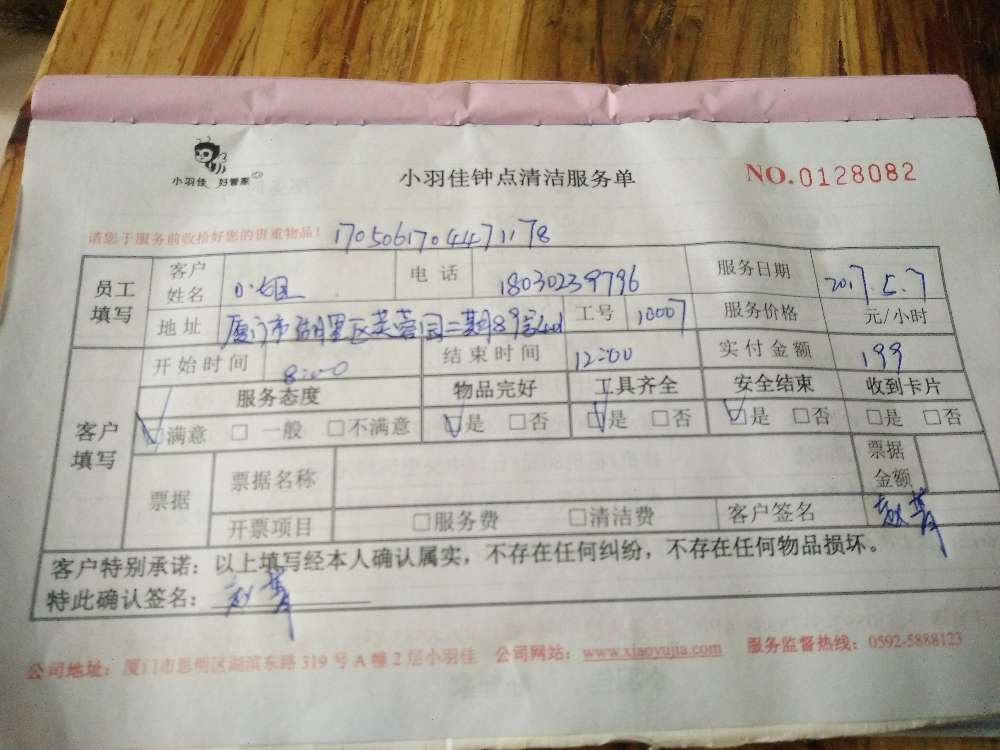 小羽佳 好管家
小羽佳钟点清洁服务单
NO.0128082
请您于服务前收拾好您的贵重物品! 1705061704471178
员工填写 客户姓名 小姐 电话 18030239796 服务日期 2017.5.7
地址 厦门市湖里区芙蓉园二期89号 工号 10007 服务价格 元/小时
客户填写 开始时间 8:00 结束时间 12:00 实付金额 199
服务态度 物品完好 工具齐全 安全结束 收到卡片
☑满意 □一般 □不满意 ☑是 □否 ☑是 □否 ☑是 □否 □是 □否
票据 票据名称 票据金额
开票项目 □服务费 □清洁费 客户签名 赵菁
客户特别承诺:以上填写经本人确认属实,不存在任何纠纷,不存在任何物品损坏。
特此确认签名: 赵菁
公司地址:厦门市思明区湖滨东路319号A幢2层小羽佳 公司网站:www.xiaoyujia.com 服务监督热线:0592-5888123